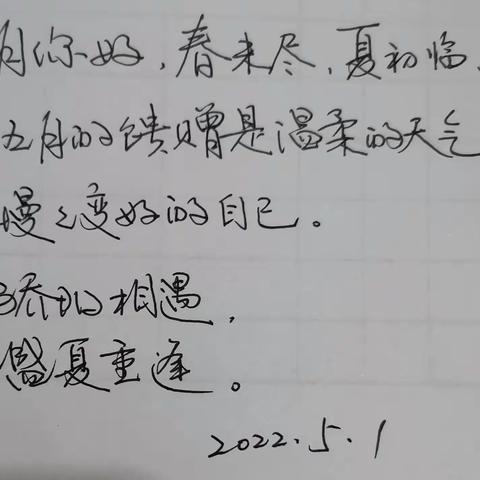 月你好，春未尽，夏初临，
五月的馈赠是温柔的天气
慢々变好的自己。
相遇，
盛夏重逢。
2022.5.1